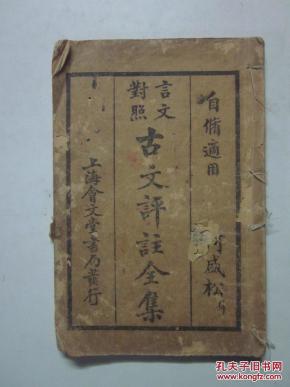 自修適用
言文
對照
古文評註全集
上海會文堂書局發行
咸松
孔夫子旧书网